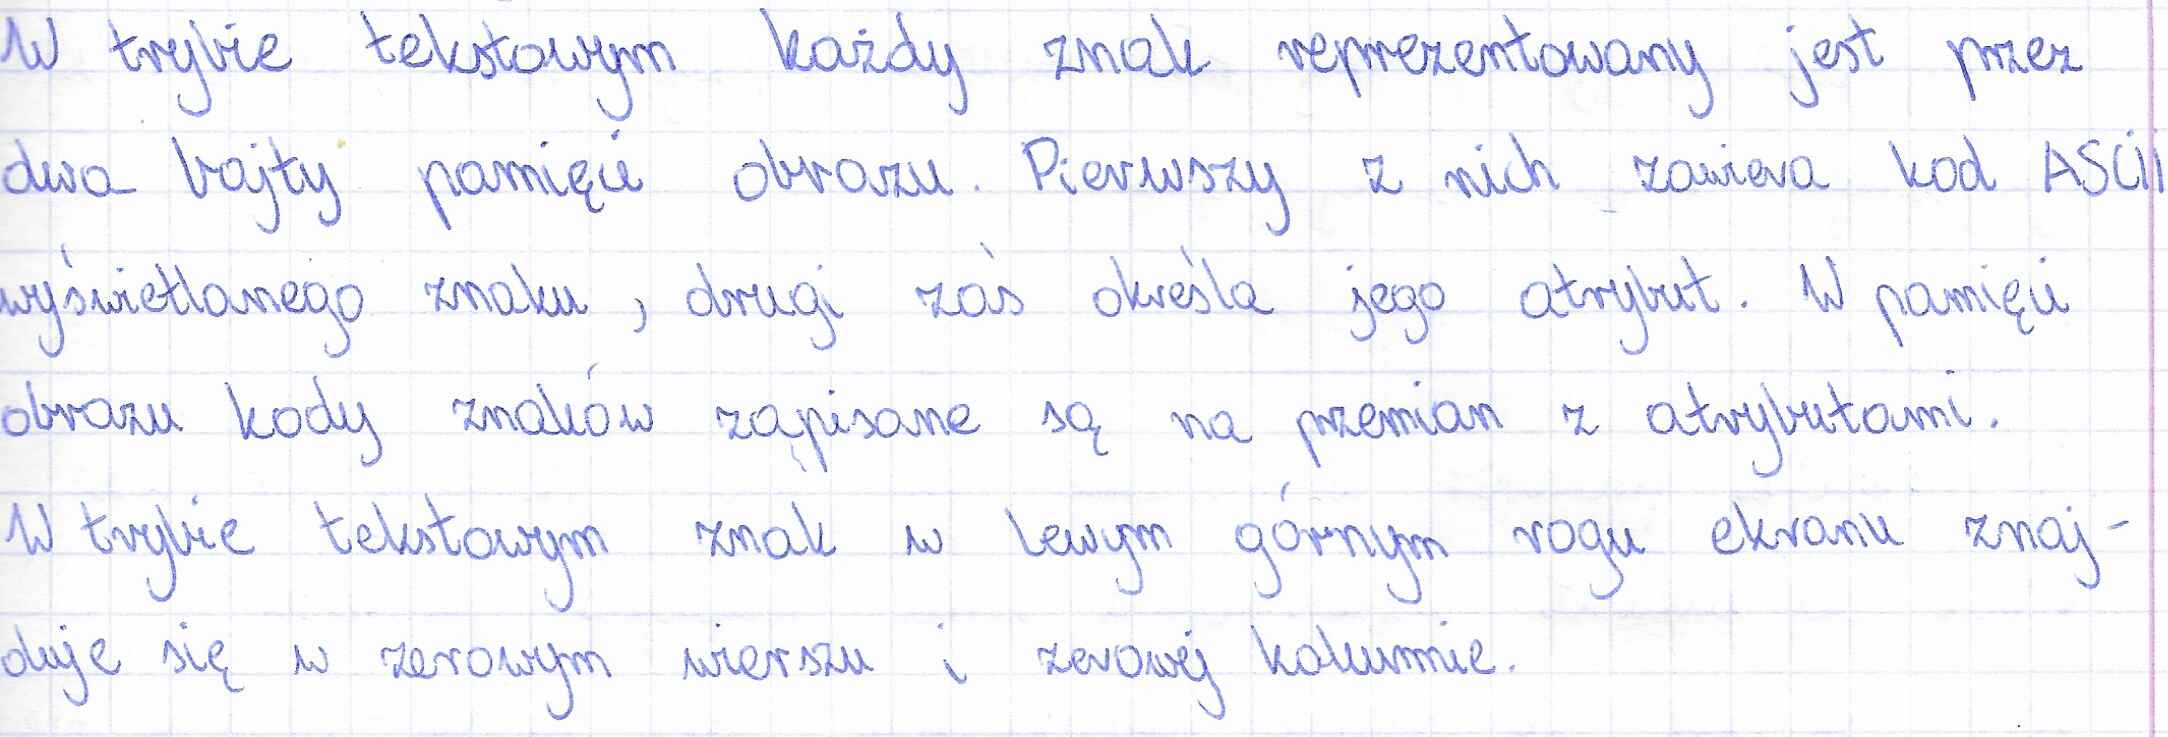 W trybie tekstowym każdy znak reprezentowany jest przez
dwa bajty pamięci obrazu. Pierwszy z nich zawiera kod ASCII
wyświetlanego znaku, drugi zaś określa jego atrybut. W pamięci
obrazu kody znaków zapisane są na przemian z atrybutami.
W trybie tekstowym znak w lewym górnym rogu ekranu znaj-
duje się w zerowym wierszu i zerowej kolumnie.